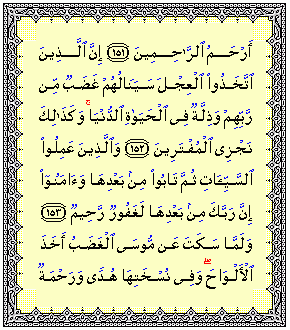 أَرْحَمُ ٱلرَّٰحِمِينَ ١٥١ إِنَّ ٱلَّذِينَ
ٱتَّخَذُوا۟ ٱلْعِجْلَ سَيَنَالُهُمْ غَضَبٌ مِّن
رَّبِّهِمْ وَذِلَّةٌ فِى ٱلْحَيَوٰةِ ٱلدُّنْيَا ۚ وَكَذَٰلِكَ
نَجْزِى ٱلْمُفْتَرِينَ ١٥٢ وَٱلَّذِينَ عَمِلُوا۟
ٱلسَّيِّـَٔاتِ ثُمَّ تَابُوا۟ مِنۢ بَعْدِهَا وَءَامَنُوٓا۟
إِنَّ رَبَّكَ مِنۢ بَعْدِهَا لَغَفُورٌ رَّحِيمٌ ١٥٣
وَلَمَّا سَكَتَ عَن مُّوسَى ٱلْغَضَبُ أَخَذَ
ٱلْأَلْوَاحَ ۖ وَفِى نُسْخَتِهَا هُدًى وَرَحْمَةٌ